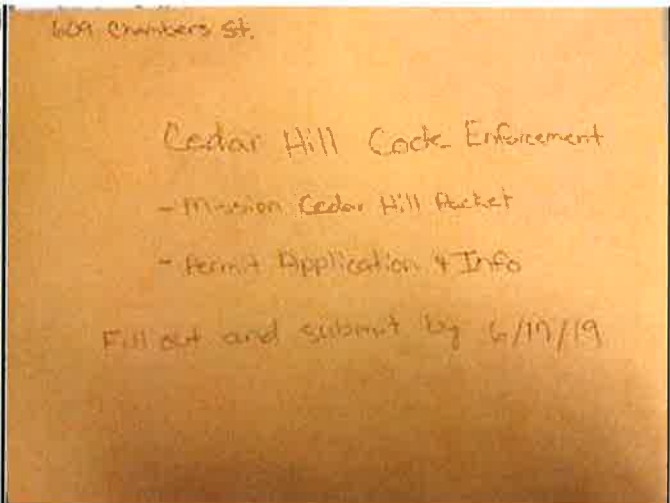 609 Chambers St.
Cedar Hill Code Enforcement
- Mission Cedar Hill Packet
- Permit Application & Info
Fill out and submit by 6/17/19